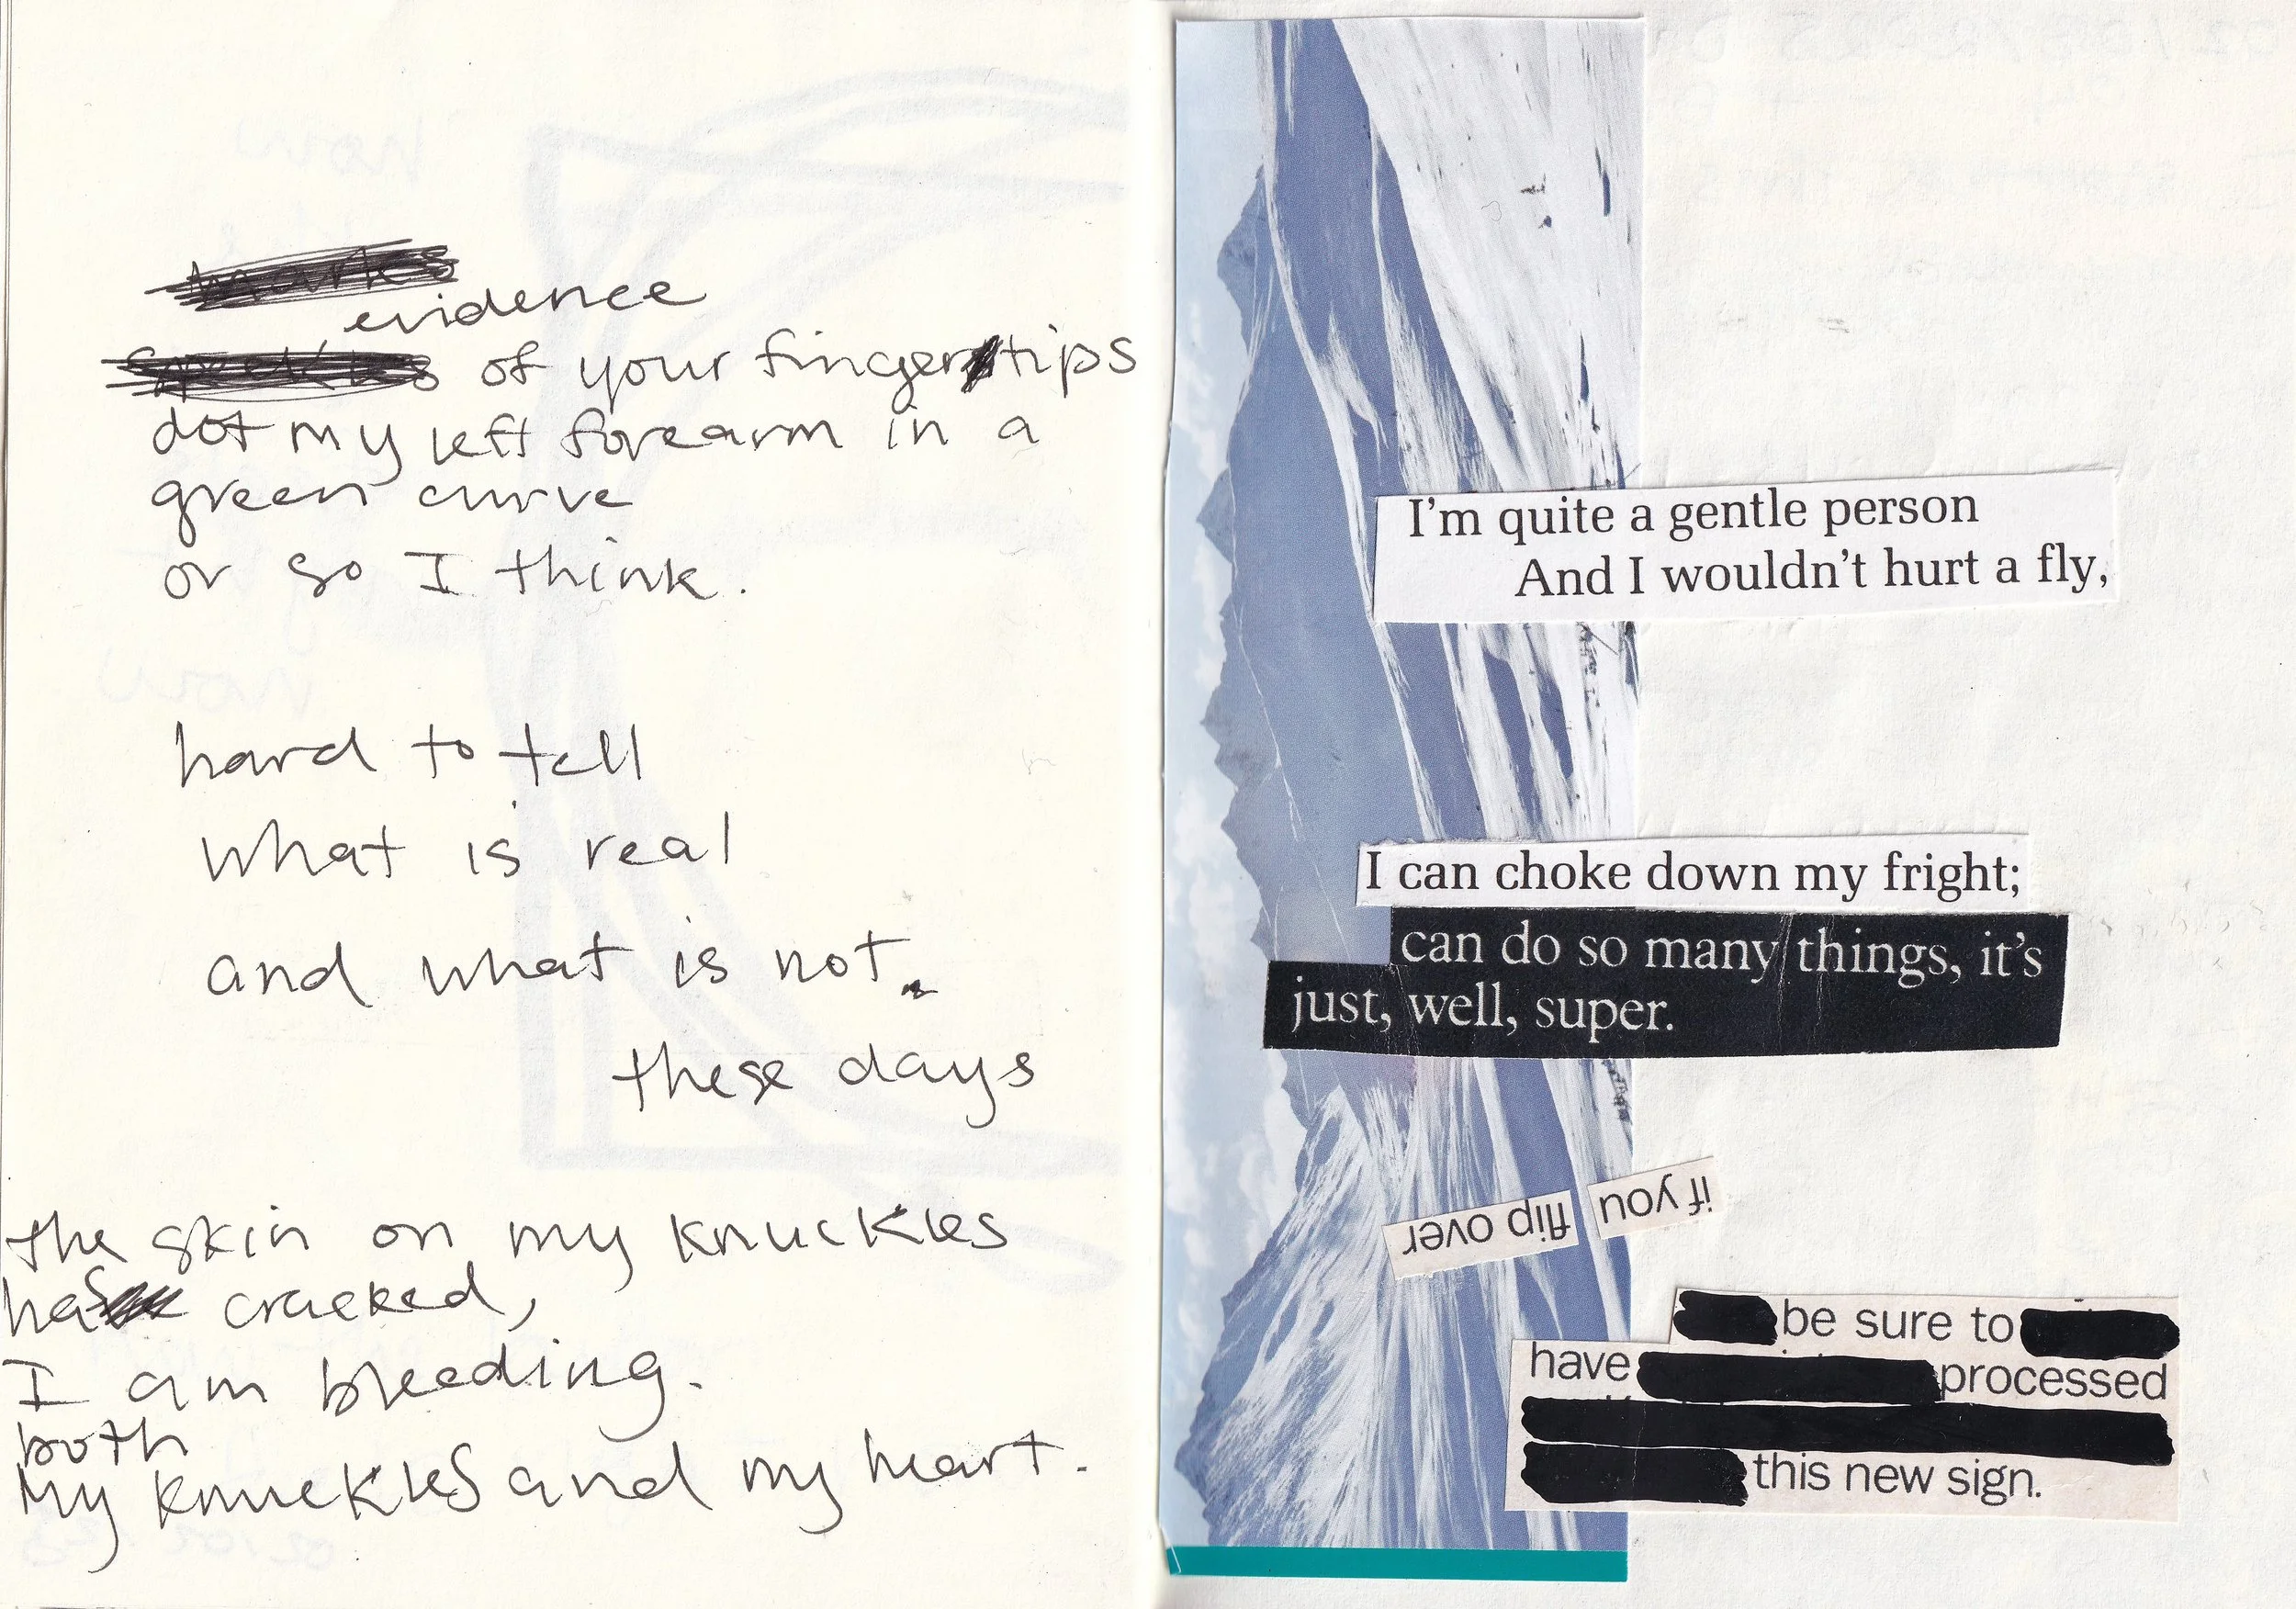 evidence
of your fingertips
dot my left forearm in a
green curve
or so I think.
hard to tell
what is real
and what is not
these days
the skin on my knuckles
has cracked,
I am bleeding.
both
my knuckles and my heart.
I'm quite a gentle person
And I wouldn't hurt a fly,
I can choke down my fright;
can do so many things, it's
just, well, super.
if you
flip over
be sure to
have processed
this new sign.